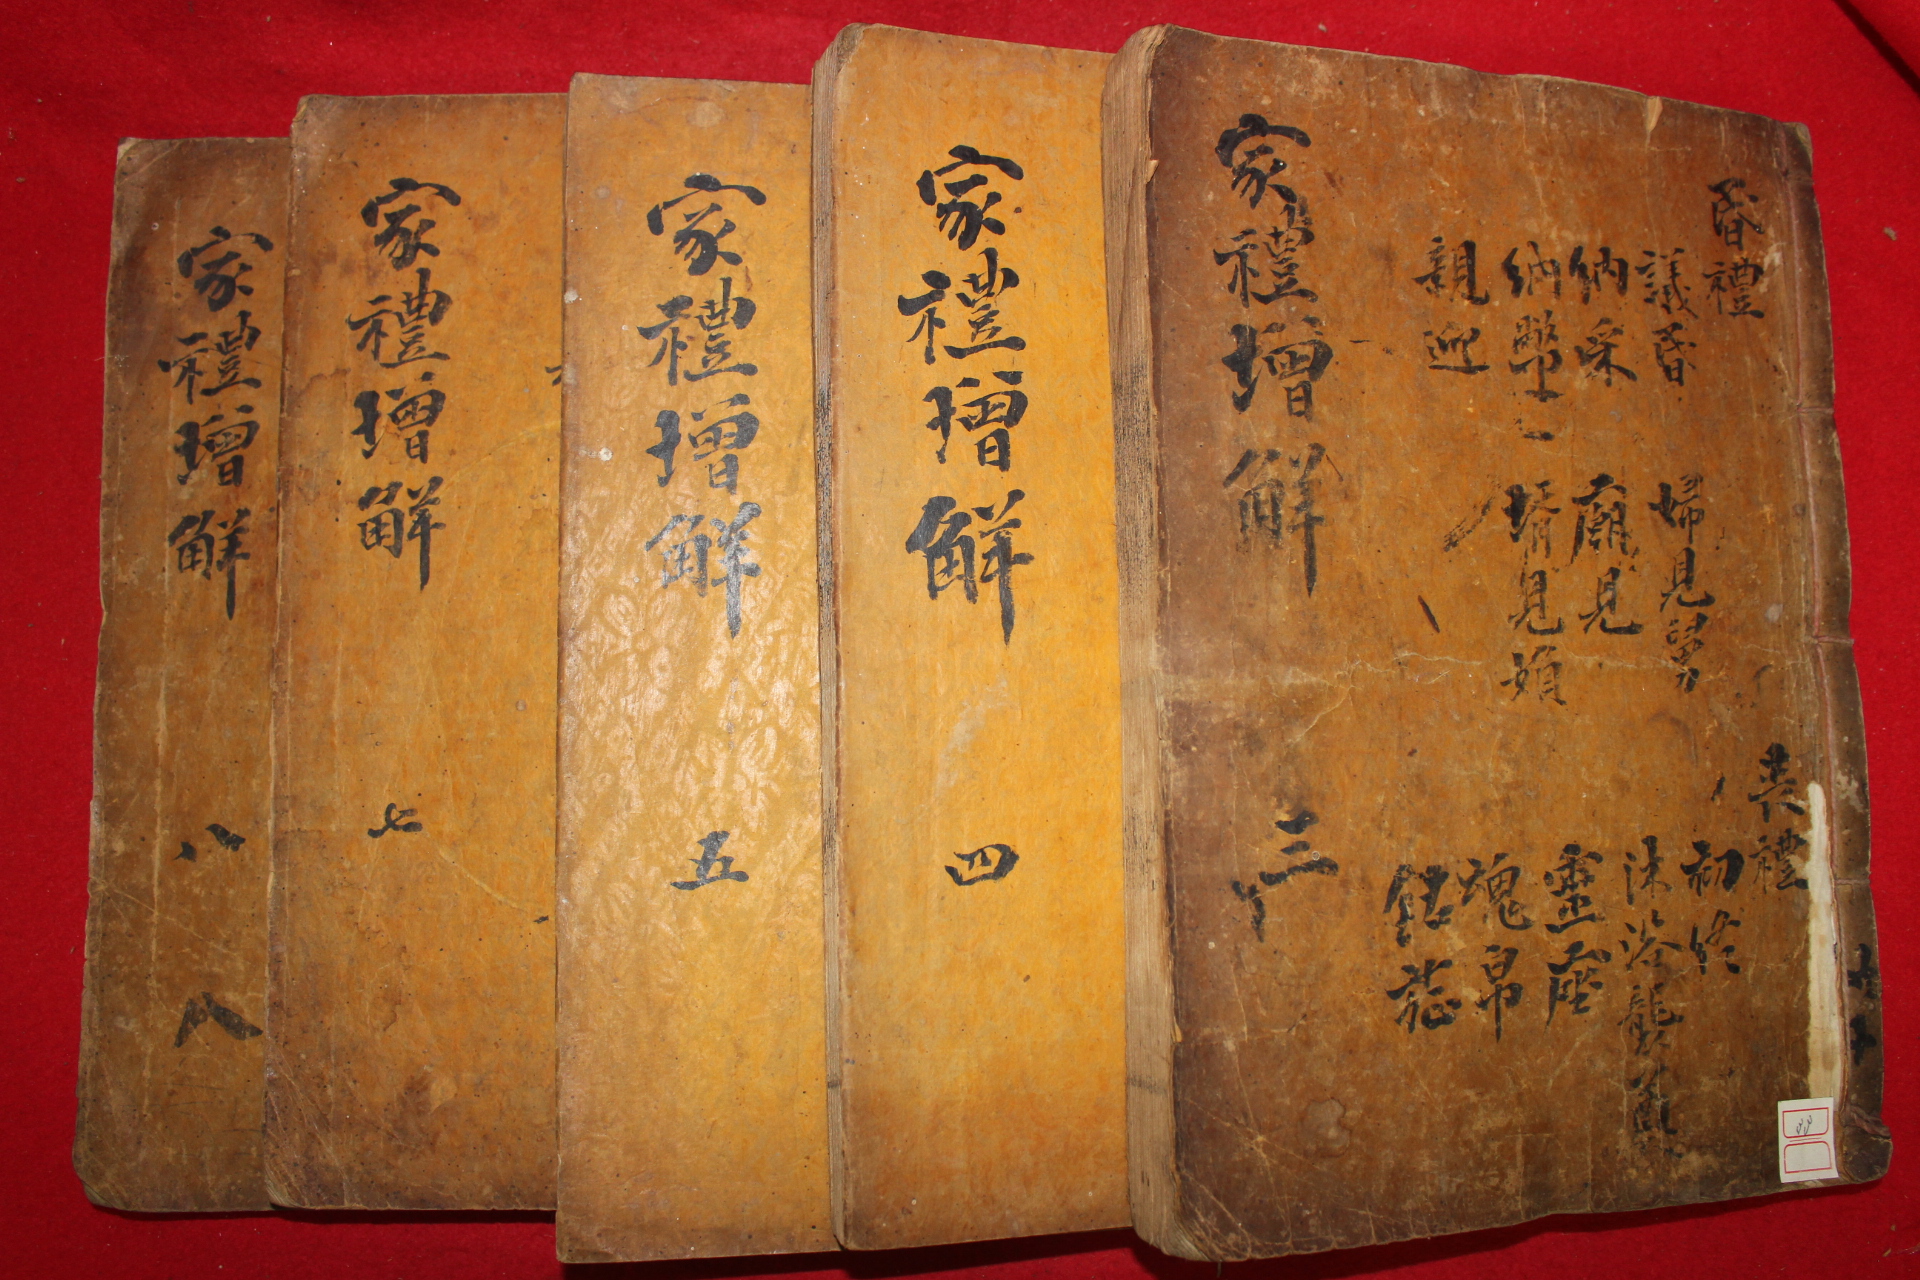 昏禮
議昏
納采
納幣
親迎
婦見舅
廟見
壻見
喪禮
初終
沐浴襲
靈座
魂帛
銘旌
家禮增解
三
家禮增解
四
家禮增解
五
家禮增解
七
家禮增解
八
八